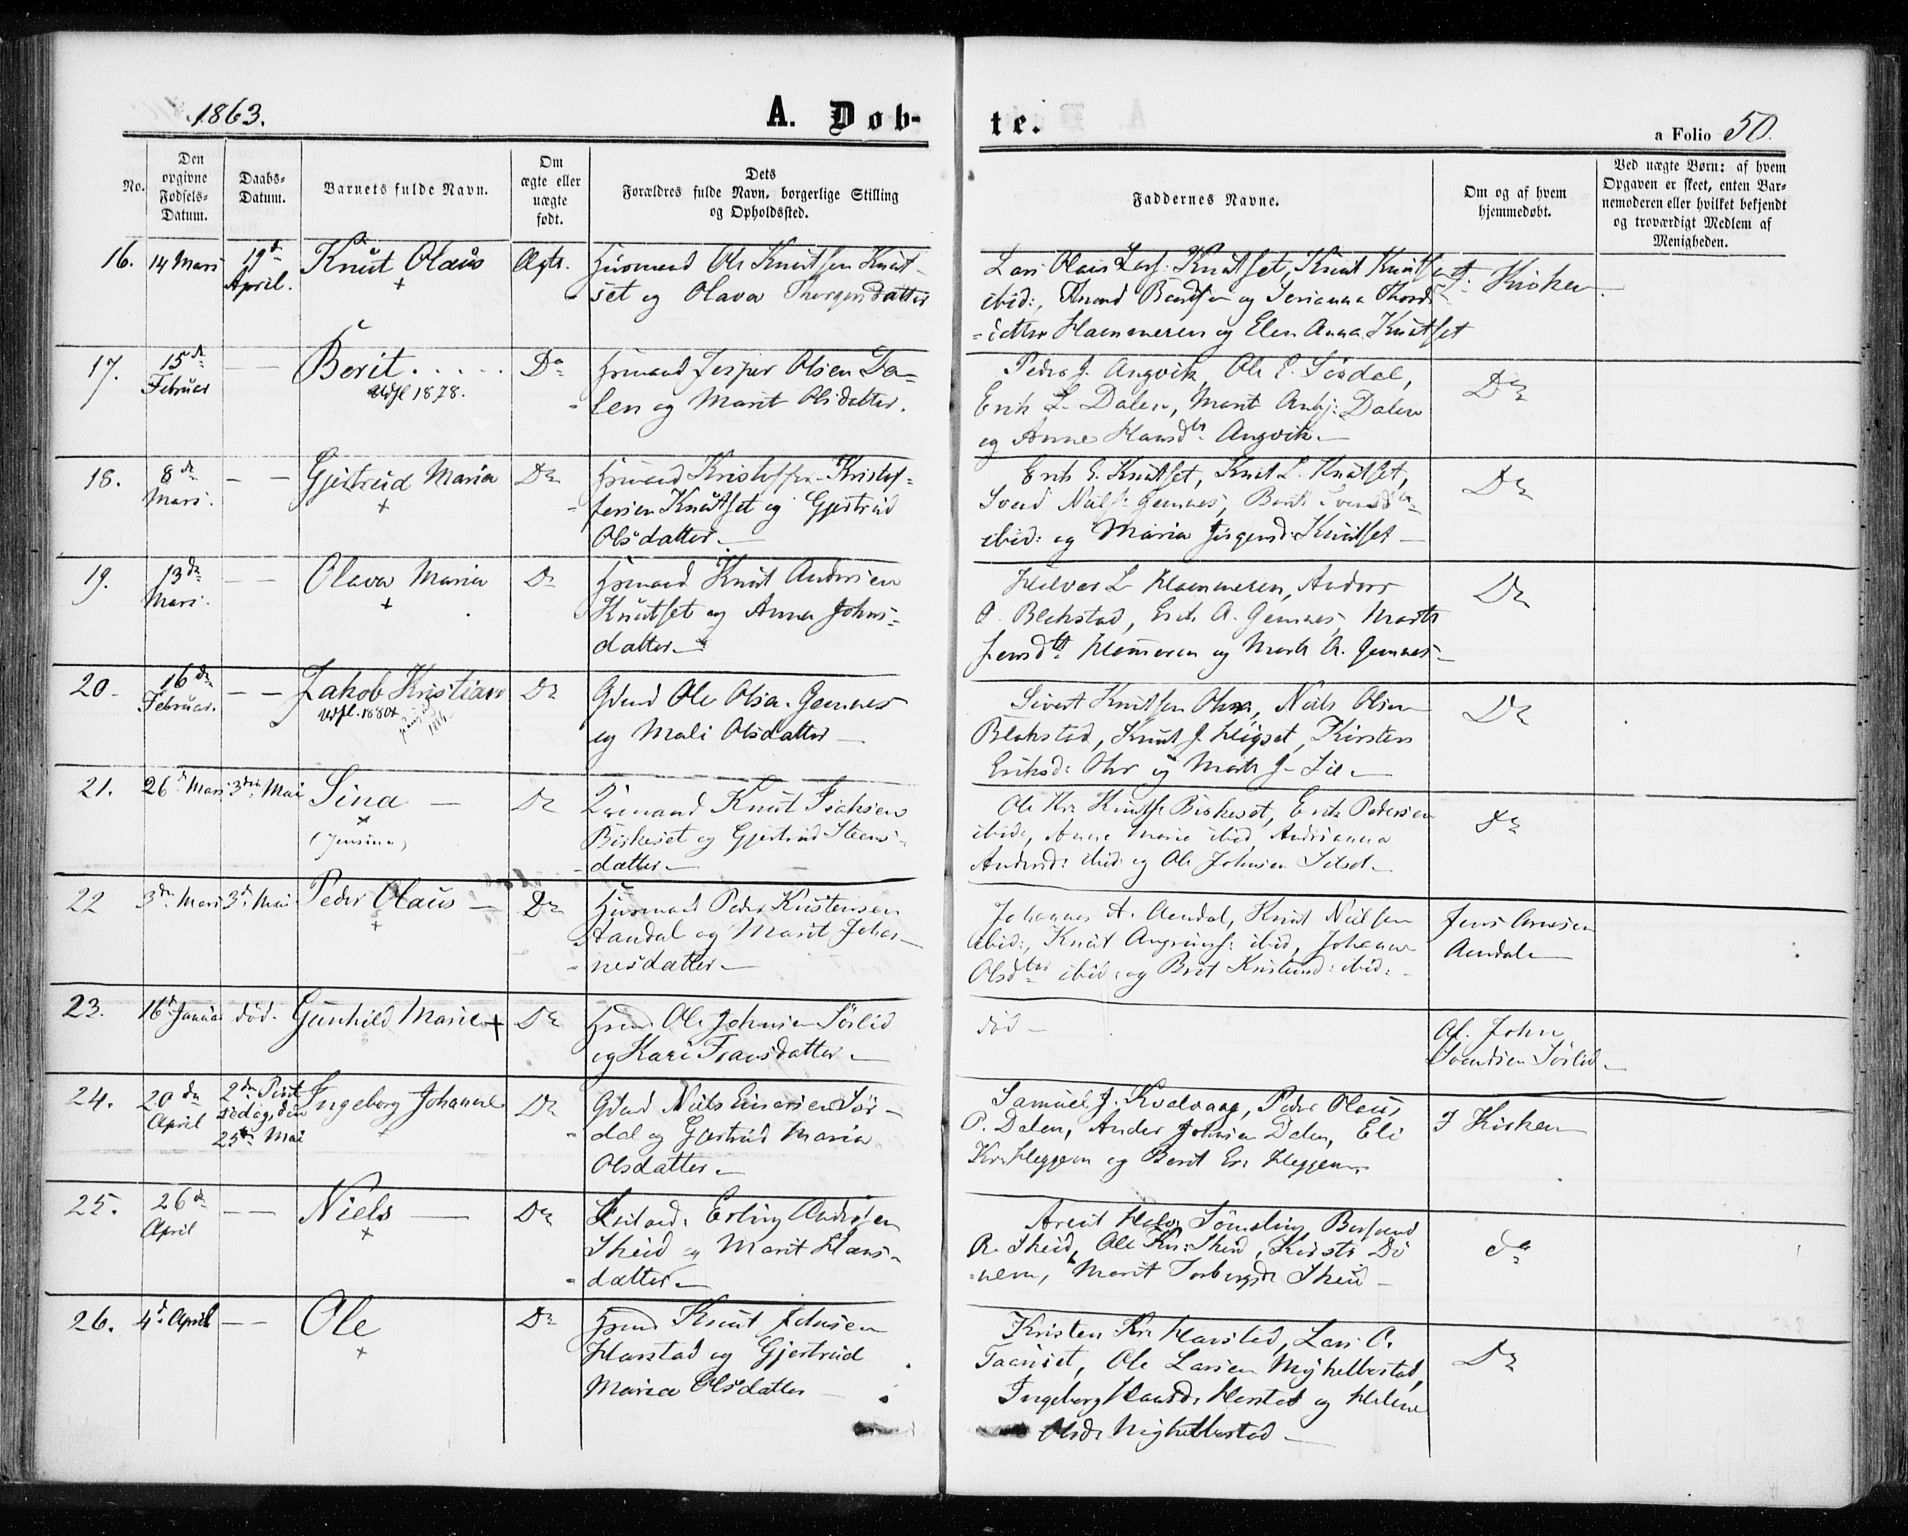 1863.
A. Døb-
te.
a Folio 50.
No.
Den opgivne Fødsels-Datum.
Daabs-Datum.
Barnets fulde Navn.
Om ægte eller uægte født.
Dets
Forældres fulde Navn, borgerlige Stilling
og Opholdssted.
Faddernes Navne.
Om og af hvem
hjemmedøbt.
Ved uægte Børn: af hvem
Opgaven er skeet, enten Bar-
nemoderen eller hvilket bekjendt
og troværdigt Medlem af
Menigheden.
16. 14 Mars 19d April. Knut Olaus + Ægte. Huusmand Ole Knutsen Knut-
set og Olava Thorgersdatter
Lars Olaus Lars: Knutset, Knut Knutsen
ibid:, og Serianna
Hammeren og Elen Anna Knutset
I: Kirken
17. 15de Februar — — Berit Do
Udfl 1878.
Jesper Olsen Da-
len og Marit Olsdatter.
Peder J. Angvik, Ole P. Sørdal,
Erik L. Dalen, Marit Dalen
og Anne Hansdtr. Angvik
Do
18. 8de Mars. — — Gjertrud Maria + Do
Kristoffer Kristof-
fersen Knutset og Gjertrud
Olsdatter
Erik E. Knutset, Knut L. Knutset,
Svend Niels: Gemnes, Berit Svendsdtr
ibid: og Maria Jørgensd: Knutset
Do
19. 13de Mars. — — Olava Maria + Do
Knut Andersen
Knutset og Anna Johns-
datter
Halvor L. Hammeren, Anders
P. Blekstad, Erik A. Gemnes, Marit
Hammeren og Marit A. Gemnes
Do
20. 16de Februar. — — Jakob Kristian Do
Udfl. 1880
Ole Olsen Gemnes
og Mali Olsdatter
Sivert Knutsen, Niels Olsen
Blekstad, Knut J. Høgset, Kirsten
Eriksd: og Marit J.
Do
21. 26d Mars 3die Mai Sina — + Do
(Jensina)
Knut Isaksen
Biskeset og Gjertrud Steens-
datter
Ole Kr. Knuts: Biskeset, Erik Pedersen
ibid:, Anne Marie ibid, Andrianna
Andersd: ibid: og Ole Johnsen
do
22 3de Mars 3d. Mai Peder Olaus + Do
Huusmand Peder Kristensen
Aandal og Marit Johan-
nesdatter
Johannes A. Aandal, Knut Nielsen
ibid:, Knut ibid, Johanna
Olsdtr ibid: og Brit Kristensd: ibid:
Jens Arnesen
Aandal
23. 16d Januar død. Gunhild Marie + Do
Ole Johnsen Sørlid
og Kari Fransdatter
død —
Af John
Svendsen Sørlid
24. 20de April 2den Pintsedag, den 25de Mai Ingeborg Johanne + Do
Niels Einersen Sør-
dal og Gjertrud Maria
Olsdatter
Samuel J. Kvalvaag, Peder Olaus
P. Dalen, Ander Johnsen Dalen, Eli
Kr. Heggem og Berit Er: Heggem
I Kirken
25. 26de April — — Niels — + Do
Erling Andersen
Skeid og Marit Hans-
datter
Arent Sømsling,
A. Skeid, Ole Kn: Skeid,
Marit Torbergsd: Skeid
do
26. 4d. April — — Ole + Do
Knut Johnsen
Harstad og Gjertrud
Maria Olsdatter
Kristen Kr. Harstad, Lars O.
Ole Larsen Myhelbostad,
Ingeborg Hansd: Harstad og Helene
Olsd: Myhelbostad
Do